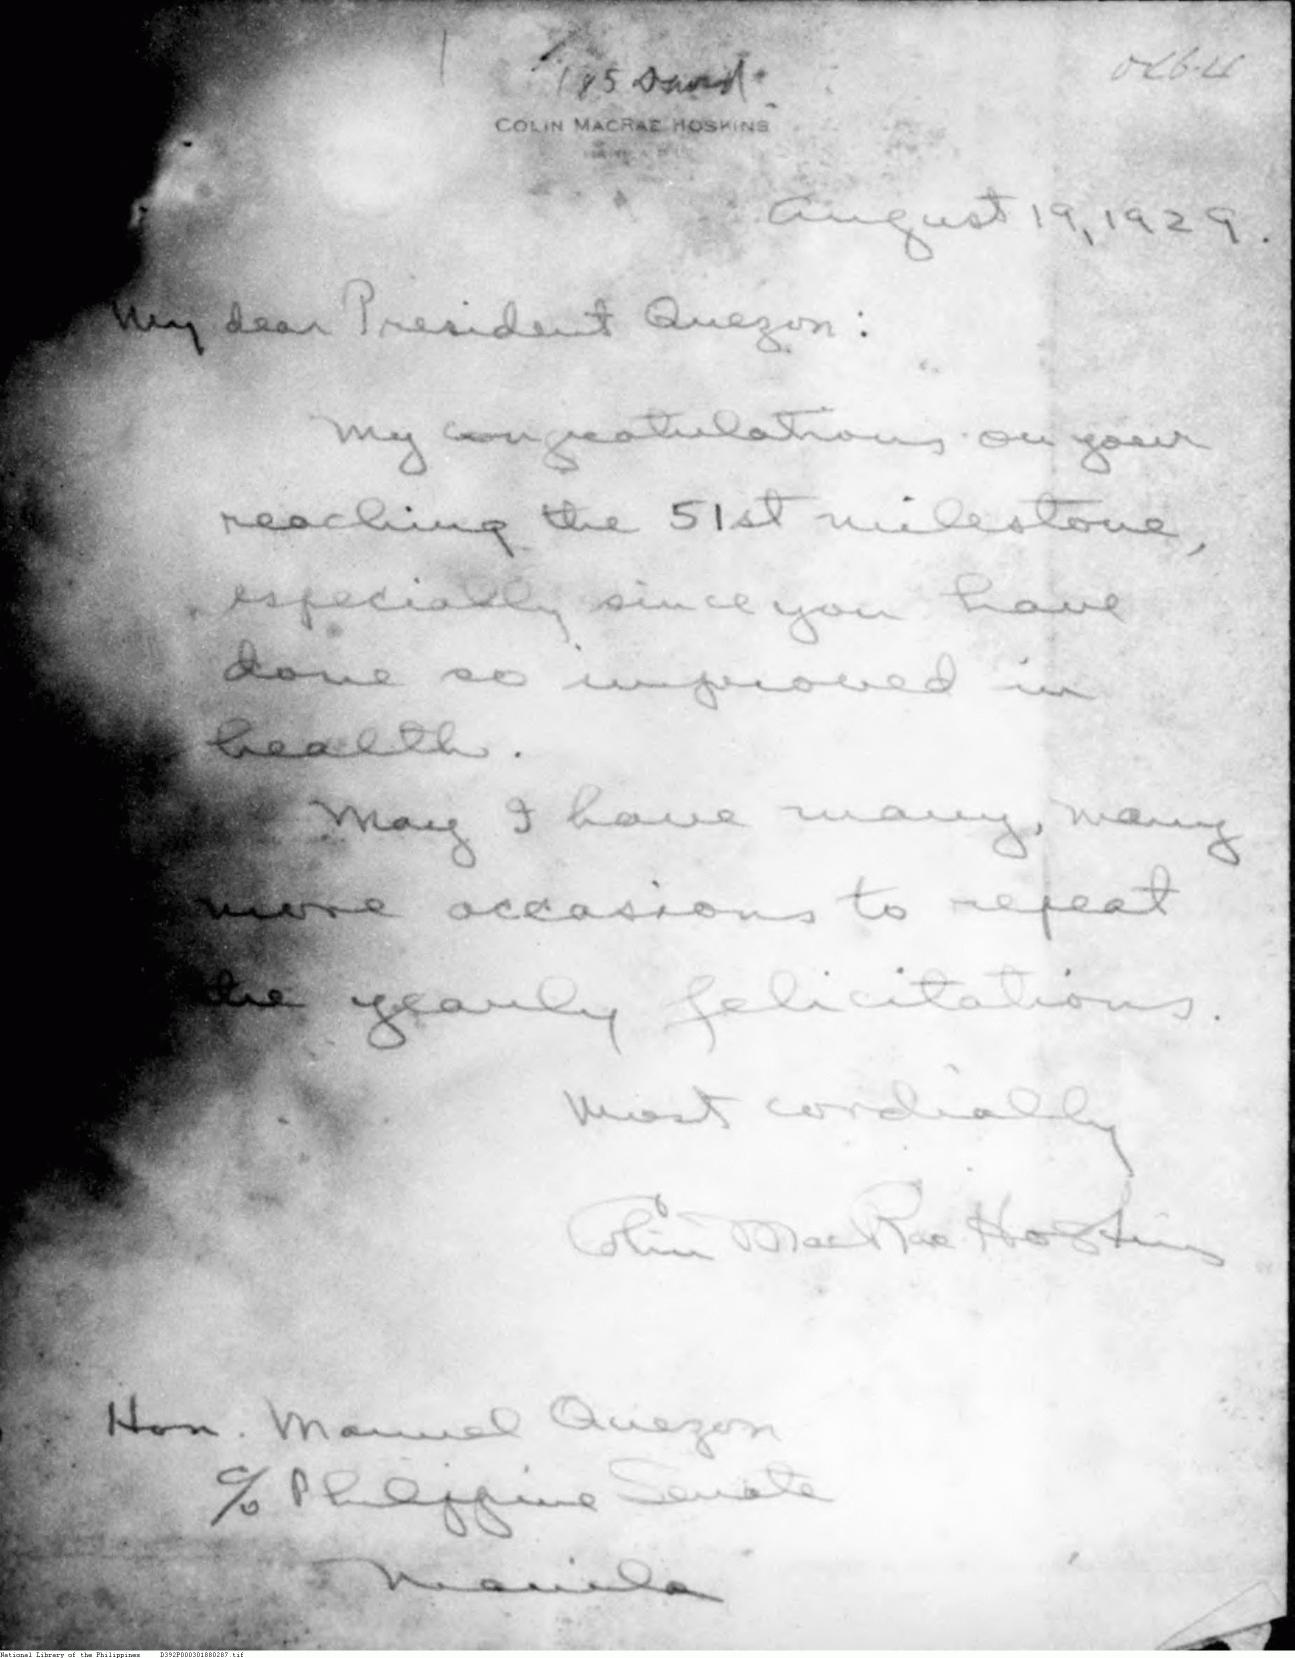 185 David.
COLIN MACRAE HOSKINS
August 19, 1929.
My dear President Quezon:
My congratulations on your
reaching the 51st milestone,
especially since you have
done so improved in
health.
May I have many, many
more occasions to repeat
the yearly felicitations.
Most cordially
Colin MacRae Hoskins
Hon. Manuel Quezon
c/o Philippine Senate
Manila
National Library of the Philippines D392P000301880287.tif